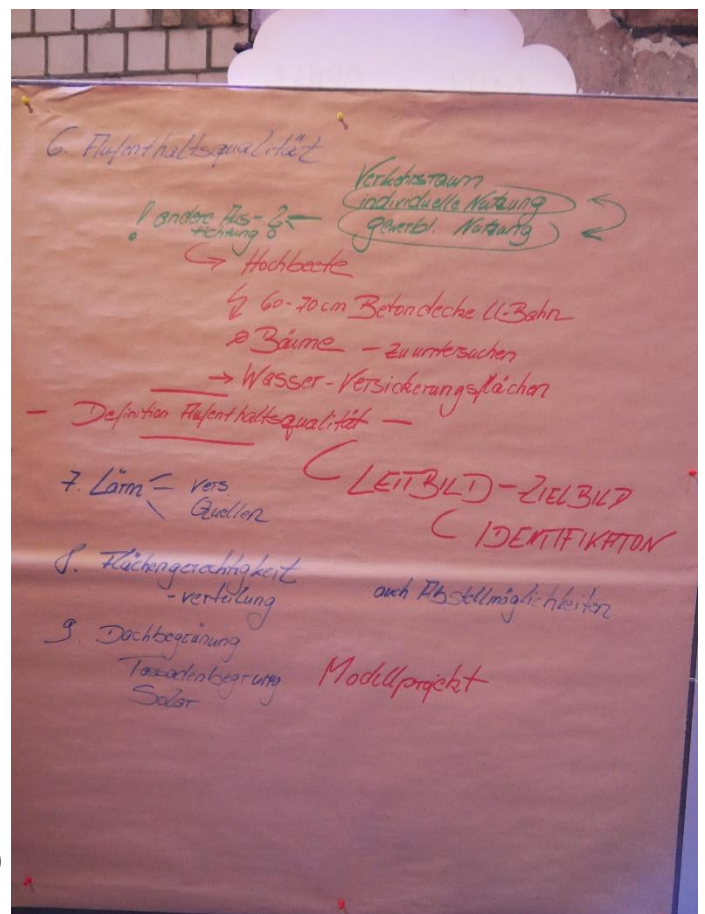 6. Aufenthaltsqualität
Verkehrsraum
individuelle Nutzung
! andere Aus-
richtung?
gewerbl. Nutzung
→ Hochbeete
60-70cm Betondecke U-Bahn
Bäume - zu untersuchen
→ Wasser-Versickerungsflächen
- Definition Aufenthaltsqualität -
7. Lärm - vers.
Quellen
LEITBILD-ZIELBILD
IDENTIFIKATON
8. Flächengerechtigkeit
-verteilung
auch Abstellmöglichkeiten
9. Dachbegrünung
Fassadenbegrung
Solar
Modellprojekt